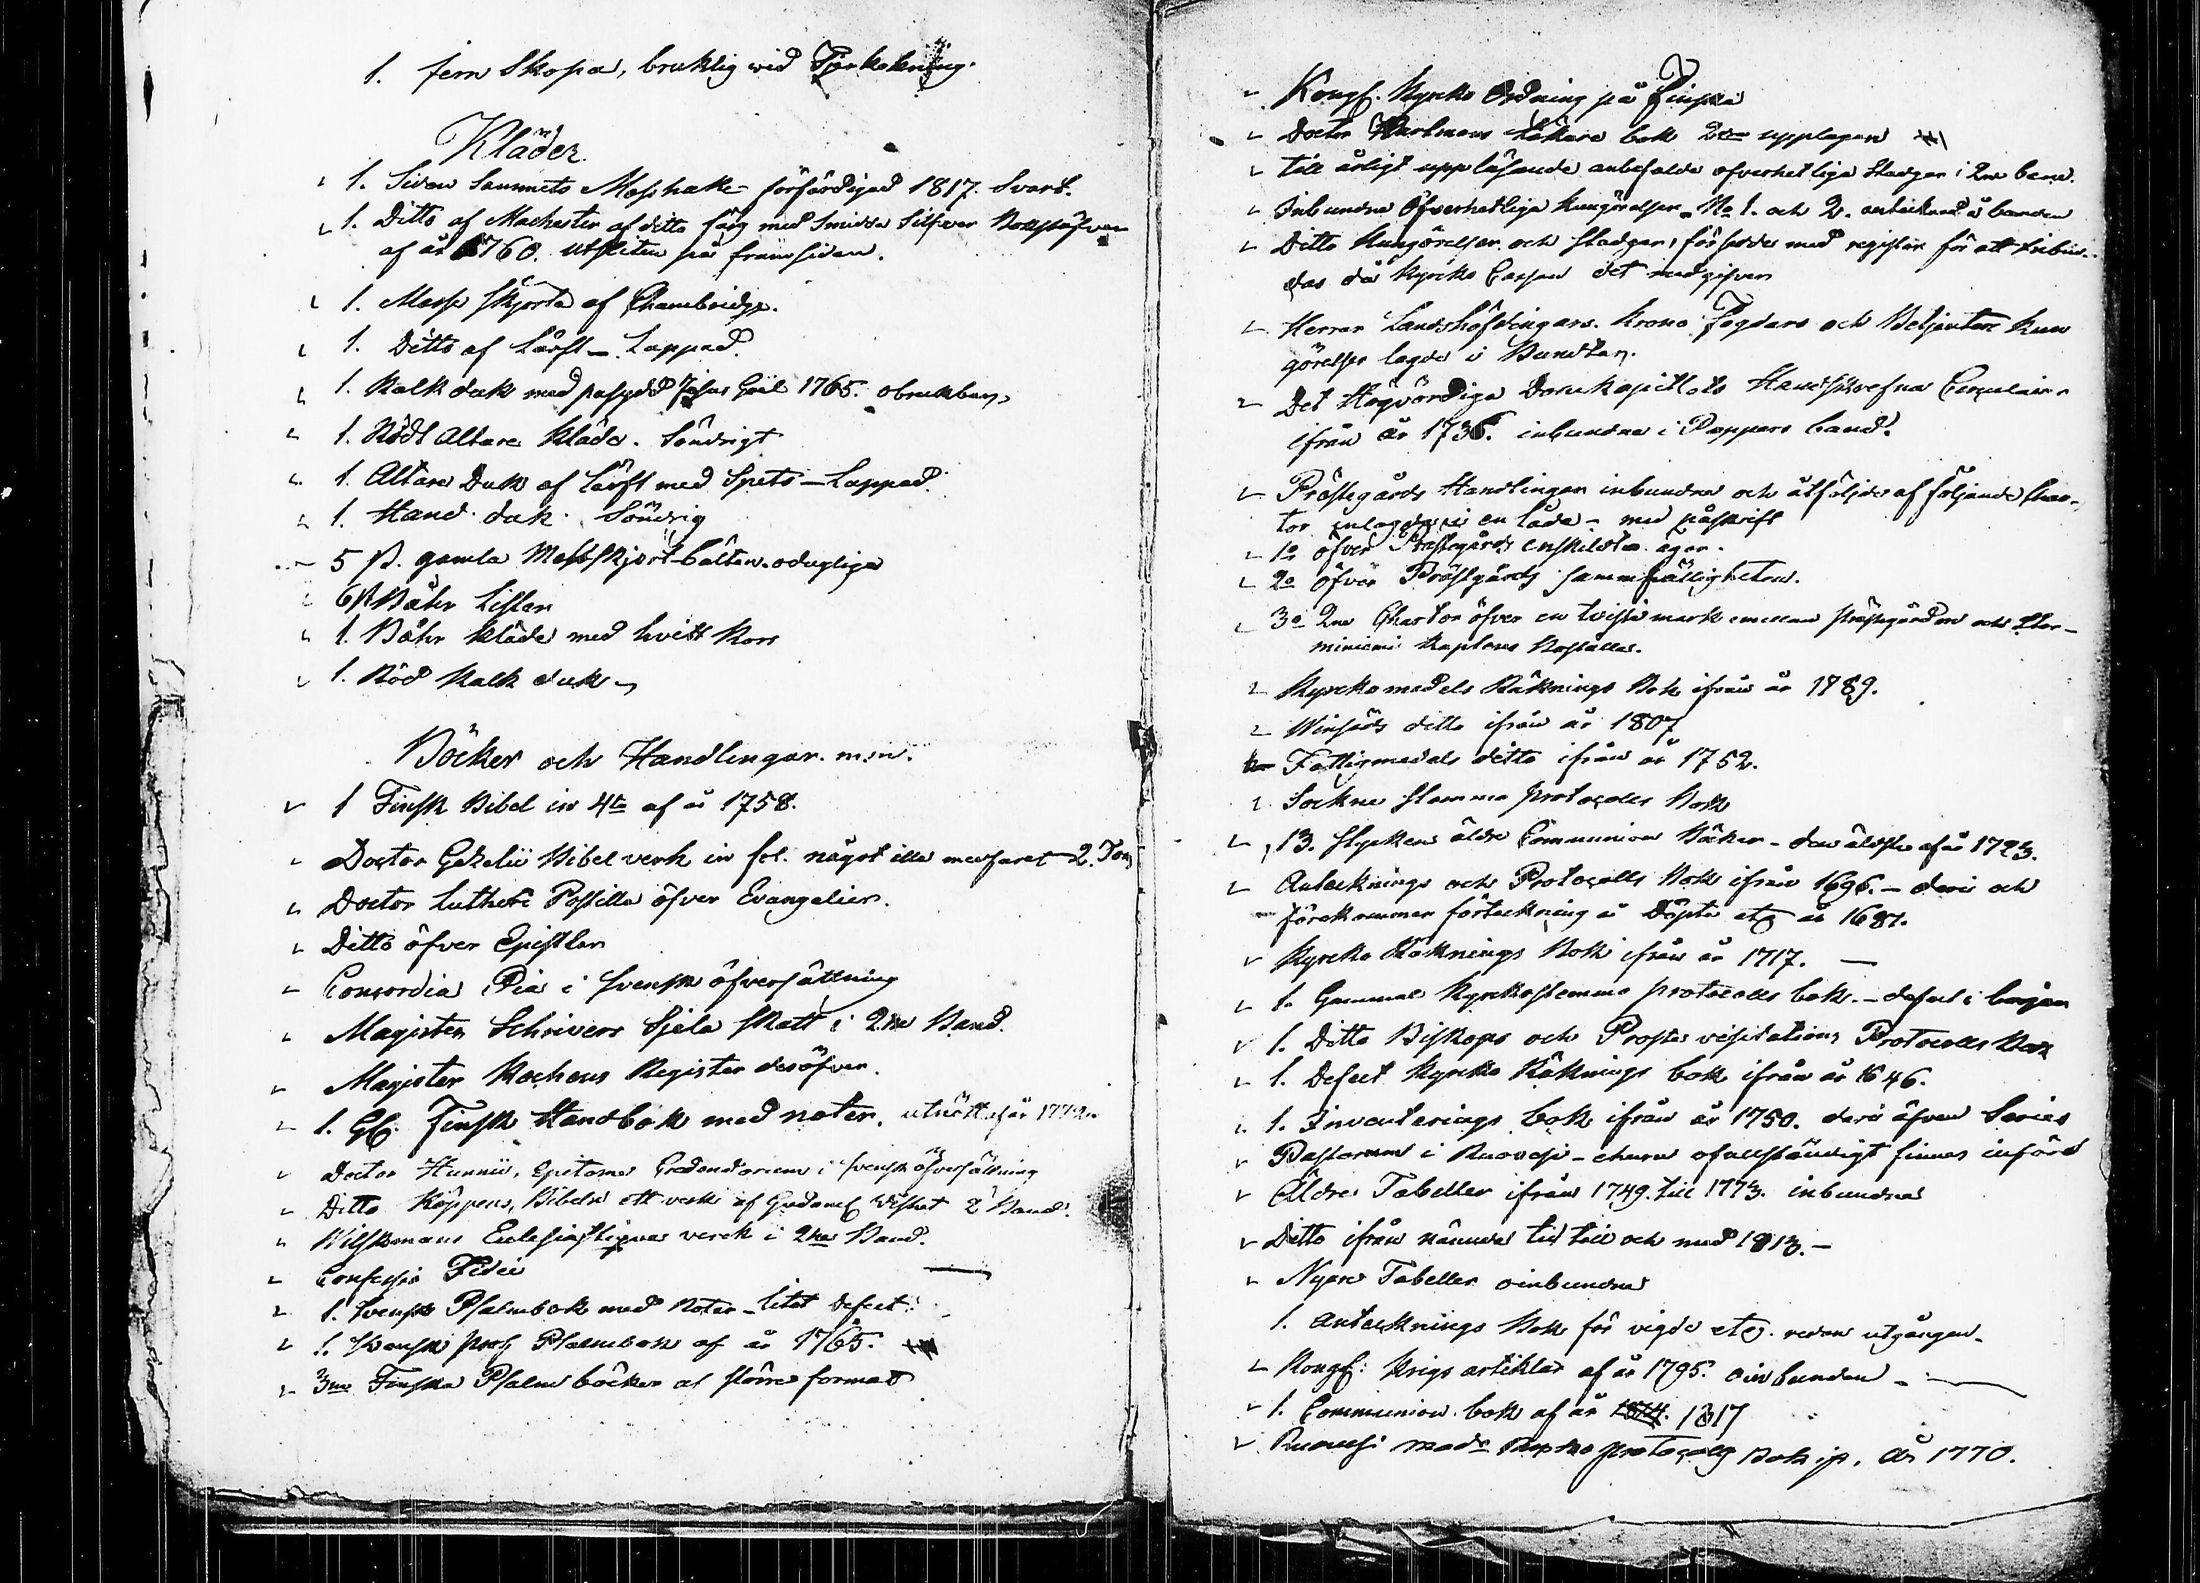 1. jern Skopa, bruklig wid Tjärkokning.
Kläder
1. Siden Sammets Messhake förfärdigad 1817. Svart.
1. Ditto af Machester af ditto färg med Smidda Silfwer Bokstäfver
af år 1760. utsliten på framsidan.
1. Mess Skjorta af Chambridge.
1. Ditto af Lärft - Lappad.
1. Kalk duk med påsydd 1765. obrukbar
1. Rödt Altare kläde. Söndrigt
1. Altare Duk af lärft med Spets - Lappad.
1. Hand duk. Söndrig
5 st. gamla Messkjort bälten. odugliga
6 st Båhr Lister
1. Båhr kläde med hvitt Kors
1. Röd Kalk duk
Böcker och Handlingar. m.m.
1 Finsk Bibel in 4to af år 1758.
Doctor Gezelii Bibel verk in fol. något illa medfaret 2. Tom
Doctor Lutheri Postilla öfver Evangelier.
Ditto öfver Epistlar
Concordia Pia i Svensk öfversättning
Magister Schrivers Själa skatt i 2ne Band.
Magister Kochens Register deröfver.
1. Gl. Finsk Handbok med noter. utnött af år
Doctor Hunnii, Epitome Credendorum i svensk öfversättning
Ditto Köppens, Bibeln ett verk af Gudomlig Vishet 2 Band.
Wilskmans Ecclesiastique verck i 2ne Band.
Confessio Fidei
1. Svensk Psalmbok med Noter - litet defect.
1. Svensk Psalmbok af år 1765.
3ne Finska Psalmböcker af större format
Kongl. Kyrcko Ordning på Finska
Doctor Läkare bok 2dra upplagan
till årligt uppläsande anbefalde öfverhetliga Stadgar i 2ne band.
Inbundna Öfverhetliga Kungörelser No 1. och 2. antecknad å banden
Ditto Kungörelser och stadgar, försedde med register för att inbin-
das då Kyrcko Cassan det medgifver
Herrar Landshöfdingars. Krono Fogdars och Betjenters kun
görelser lagde i Bundtar.
Det Högvördiga Domkapitlets Handskrefna Circulairer
ifrån år 1736. inbundna i Pappers band.
Prästegårds Handlingar inbundna och åtföljde af följande char-
tor inlagde i en låda - med påskrift
1o öfver Prästegårds enskildta ägor.
2o öfver Prästgårds samfälligheten.
3o 2ne Chartor öfver en tviste mark emellan prästegården och Stor-
miniemi Kaptens Boställe.
Kyrckomedels Räknings Bok ifrån år 1789.
Winfärds ditto ifrån år 1807
Fattigmedels ditto ifrån år 1752.
Sockne stämmo protocolls Bok
13. stycken äldre Communion Böcker - den äldste af år 1723.
Antecknings och Protocolls Bok ifrån 1696. - deri och
förekommer förteckning å Döpte etc år 1687.
Kyrcko Räknings Bok ifrån år 1717. -
1. Gammal Kyrckostämmo protocolls bok. - defect i början
1. Ditto Biskops och Prostes visitations Protocolls Bok
1. Defect Kyrcko Räknings bok ifrån år 1646.
1. Inventerings bok ifrån år 1750. deri äfven Series
Pastorum i Ruovesi - ehuru ofullständigt finnes införd
Äldre Tabeller ifrån 1749. till 1773. inbundna
Ditto ifrån nämnde tid till och med 1813. -
Nyare Tabeller oinbundna
1. Antecknings Bok för vigde etc. redan utgången.
Kongl: Krigs artiklar af år 1795. oinbunden -
1. Communion bok af år 1817
Ruovesi Bok år 1770.